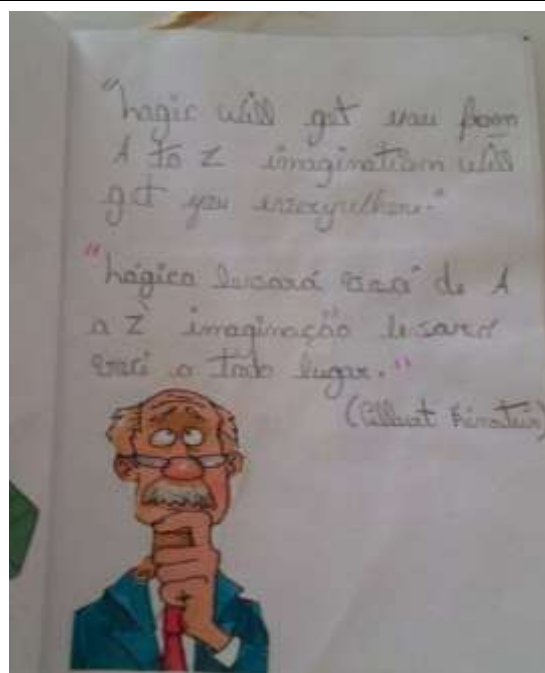 "Logic will get you from
A to Z imagination will
get you everywhere."
"Lógica levará você de A
a Z imaginação levará
você a todo lugar."
(Albert Einstein)